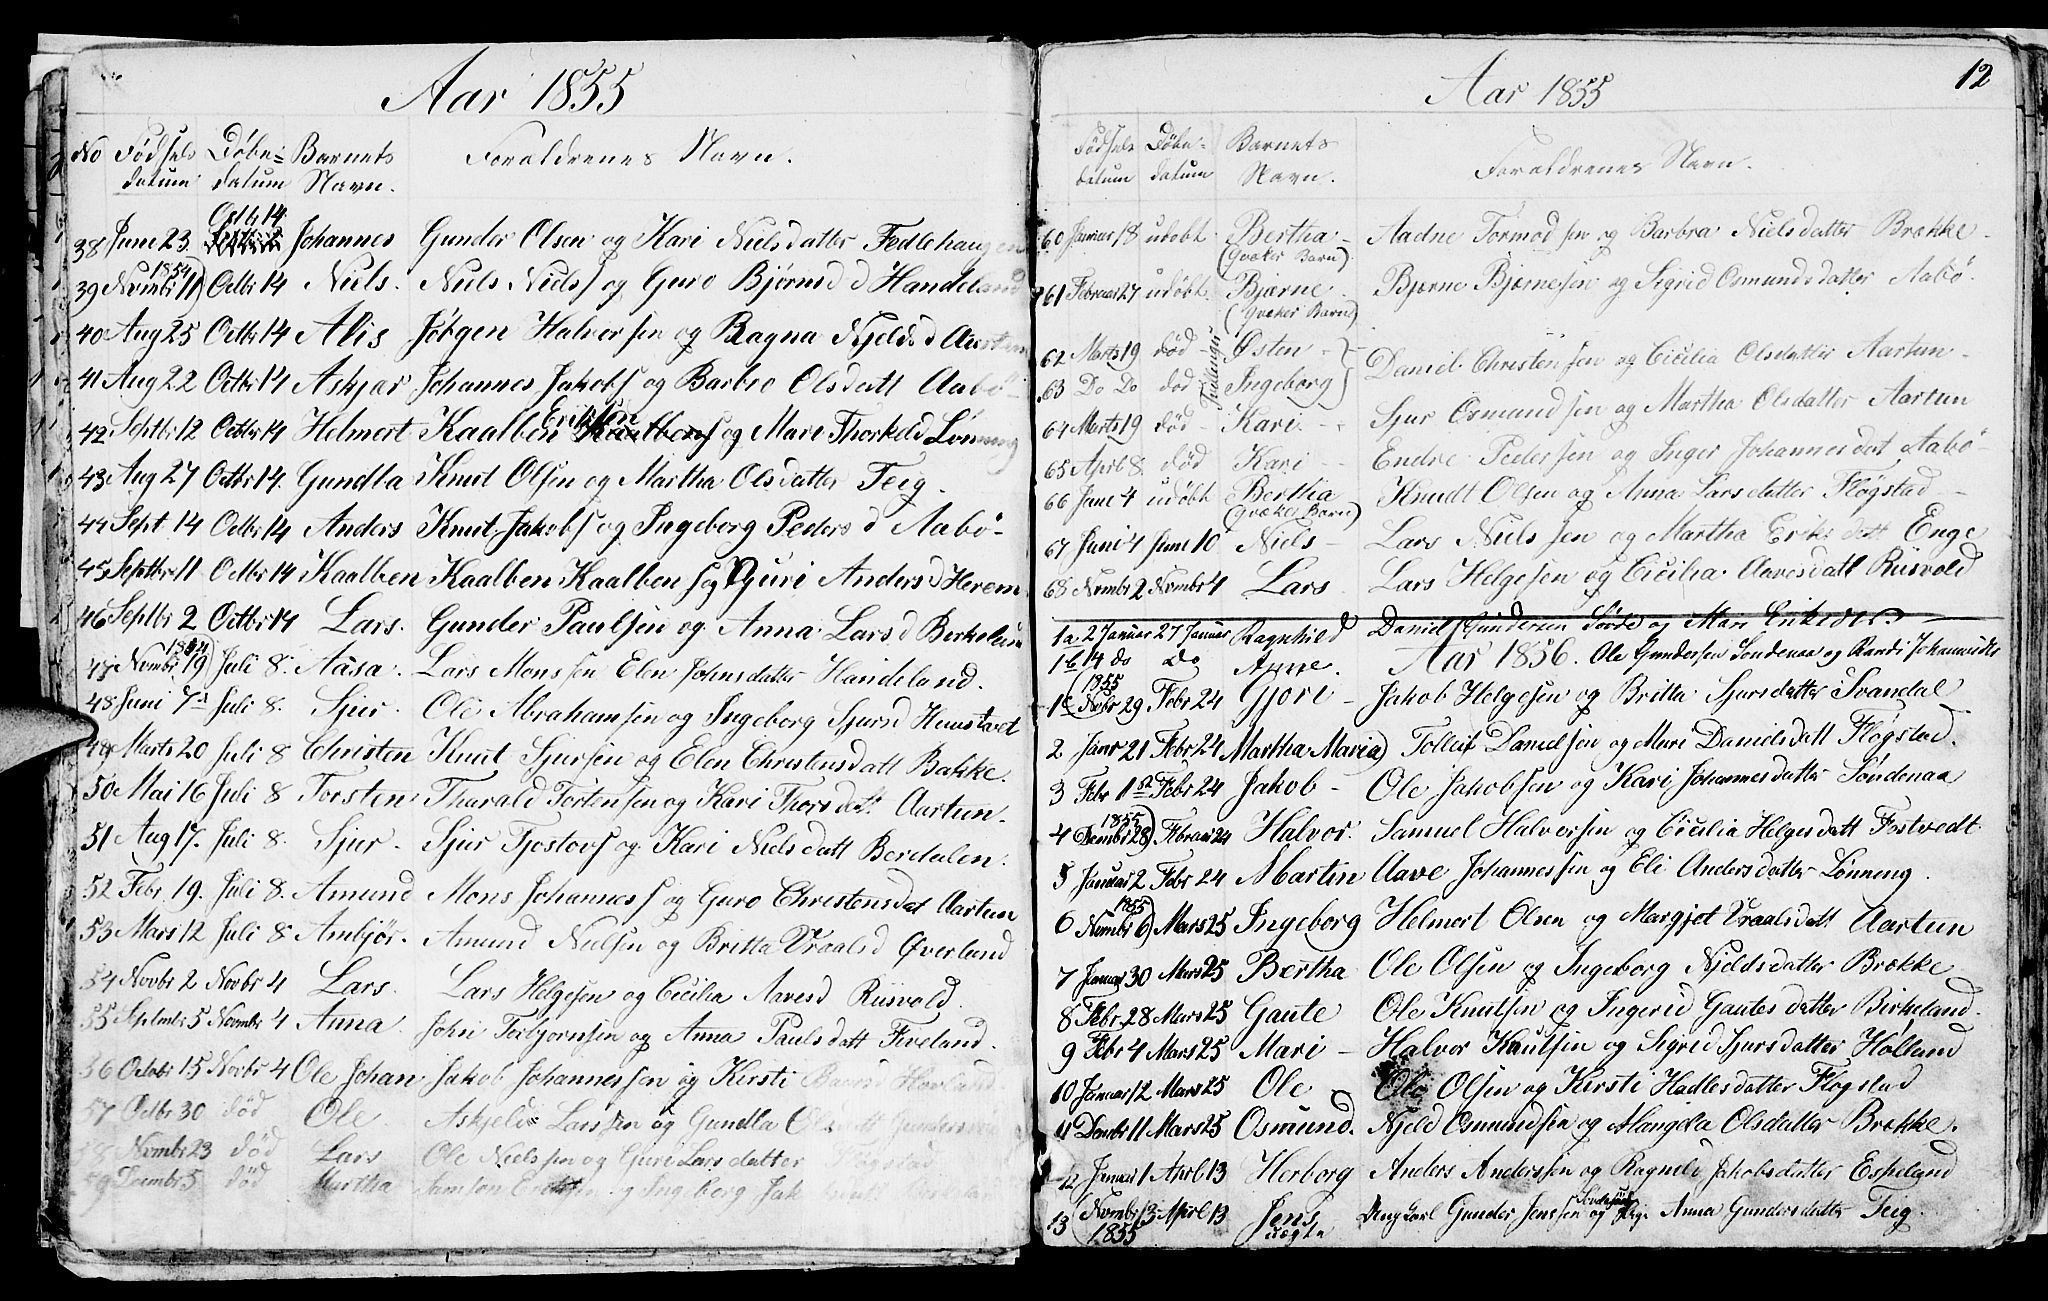 Aar 1855
No Fødsels Døbe- Barnets Forældrenes Navn.
datum datum Navn.
Octb 14
38 June 23 Johannes Gunder Olsen og Kari Nielsdatter Fedlehaugen
1854
39 Novmbr 11) Octbr 14 Niels. Niels Niels og Guro Bjørnsd Handeland
40 Aug 25 Octbr 14 Alis Jörgen Halversen og Ragna Njelds d Aartun
41 Aug 22 Octbr 14 Askjær Johannes Jakobs og Barbro Olsdatt Aabö
42 Septbr 12 Octbr 14 Helmert Kaalben Eriksen og Mari Thorkeld Lönning
43 Aug 27 Octbr 14. Gundla Knut Olsen og Martha Olsdatter Teig.
44 Sept 14 Octbr 14 Anders Knut Jakobs og Ingeborg Peders d Aabö-
45 Septbr 11 Octbr 14 Kaalben Kaalben Kaalbens og Guri Anders d Herem
46 Septbr 2 Octbr 14 Lars. Gunder Paulsen og Anna Lars d Berkeland
1854
47 Novmbr 19) Juli 8. Aasa. Lars Monssen Elen Johnsdatter Handeland.
48 Juni 7 Juli 8. Sjur. Ole Abrahamsen og Ingeborg Sjursd
49 Marts 20 Juli 8 Christen Knut Sjursen og Elen Christensdatt Bakke.
50 Mai 16 Juli 8 Torsten Tharald Tortensen og Kari Thorsdatt Aartun.
51 Aug 17. Juli 8. Sjur. Sjur Tjostovs og Kari Nielsdatt Berdalen.
52 Febr 19. Juli 8. Amund Mons Johanness og Guro Christensdat Aartun
53 Mars 12 Juli 8 Ambjör. Amund Nielsen og Britta Vraals d Øverland
54 Novbr 2 Novbr 4 Lars. Lars Helgesen og Cicilia Aavesd Rüsvold.
55 Septmbr 5 Novmbr 4 Anna. John Torbjørnsen og Anna Paulsdatt Fiveland.
56 Octobr 15 Novbr 4 Ole Johan Jakob Johannessen og Kirsti
57 Octbr 30 död Ole Askjeld Larssen og Gundla
58 Novmbr 23 död Lars Ole Nielssen og Guri Larsdatter Fløgstad
59 Decmbr 5 död Martha Samson og Ingeborg
12
Aar 1855
Fødsels Døbe- Barnets Forældrenes Navn.
datum datum Navn.
60 Januar 18 udöbt Bertha - Aadne Tormodsen og Barbra Nielsdatter Brække -
(Qvæker Barn)
61 Februar 27 udöbt. Bjærne Bjørne Bjørnesen og Sigrid Osmundsdatter Aabö
(Qvæker Barn)
Tvilinger
62 Marts 19 död - Østen - Daniel Christensen og Cicilia Olsdatter Aartun -
63 Do Do död Ingeborg
64 Marts 19 död - Kari - Sjur Osmundsen og Martha Olsdatter Aartun
65 April 8 död Kari - Endre Pedersen og Inger Johannesdat Aabö -
66 June 4 udöbt Berthia Knudt Olsen og Anna Larsdatter Fløgstad -
(Qvæker Barn)
67 Juni 4 June 10 Niels - Lars Nielssen og Martha Eriksdatt Enge
68 Novmbr 2 Novmbr 4 Lars Lars Helgesen og Cicilia Aavesdatt Rüsvold
1a 2 Januar 27 Januar Ragnhild Daniel Gundersen og Mari
1b 14 do Do Anne. Aar 1856. Ole Gundersen Söndenaa og Randi
1855
1c (Nobr 29 Febr 24 Gjöri - Jakob Helgesen og Britta Sjursdatter Svandal
2 Janr 21 Febr 24 Martha Maria) Tollef Danielsen og Mari Danielsdatt Fløgstad.
3 Febr 1 Febr 24 Jakob - Ole Jakobsen og Kari Johannesdatter Söndenaa
1855
4 Decmbr 28) Februar 24 Halvor. Samuel Halversen og Cicilia Helgesdatt Fostvedt
5 Januar 2 Febr 24 Martin Aave Johannessen og Eli Andersdatter Lönning.
1855
6 Novmbr 6) Mars 25 Ingeborg Helmert Olsen og Margjet Vraalsdatt Aartun
7 Januar 30 Mars 25 Bertha Ole Olsen og Ingeborg Njeldsdatter Brække
8 Febr. 28 Mars 25 Gaute Ole Knutsen og Ingerid Gautesdatter Birkeland.
9 Febr 4 Mars 25 Mari - Halvor Knutsen og Sigrid Sjursdatter Hölland
10 Januar 12 Mars 25 Ole Ole Olsen og Kirsti Hadlesdatter Fløgstad
11 Decmbr 11 Mars 25 Osmund. Njeld Osmundsen og Mangela Olsdatter Brække.
12 Januar 1 Aprl 13 Herborg Anders Anderssen og Ragnild Jakobsdatter Espeland
13 (Novmbr 13 April 13 Jens Ungkarl Gunder Jenssen og Pige Anna Gundersdatter Teig.
1855 uægte